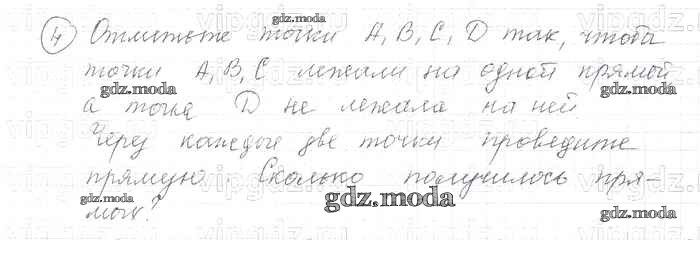 ④ Отметьте точки A, B, C, D так, чтобы
точки A, B, C лежали на одной прямой
а точка D не лежала на ней.
Через каждые две точки проведите
прямую. Сколько получилось пря-
мых?
gdz.moda
gdz.moda
gdz.moda
gdz.moda
gdz.moda
gdz.moda